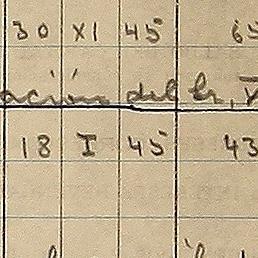 30 XI 45 65
ación del Sr. V
18 I 45 43